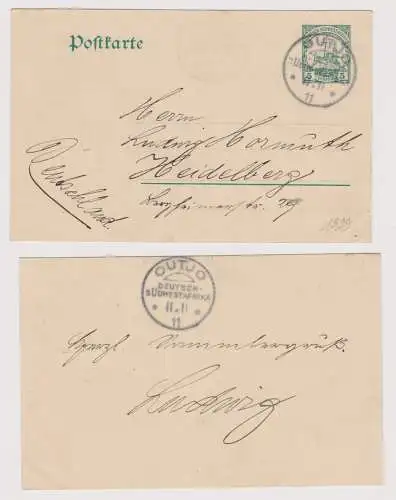 Postkarte
OUTJO
SÜDWESTAFRIKA
11
Herrn
Ludwig Hormuth
Heidelberg
Bergheimerstr. 79
Deutschland.
OUTJO
DEUTSCH-
SÜDWESTAFRIKA
* 11.11 *
11
Herzl. Sammlergruß.
Ludwig